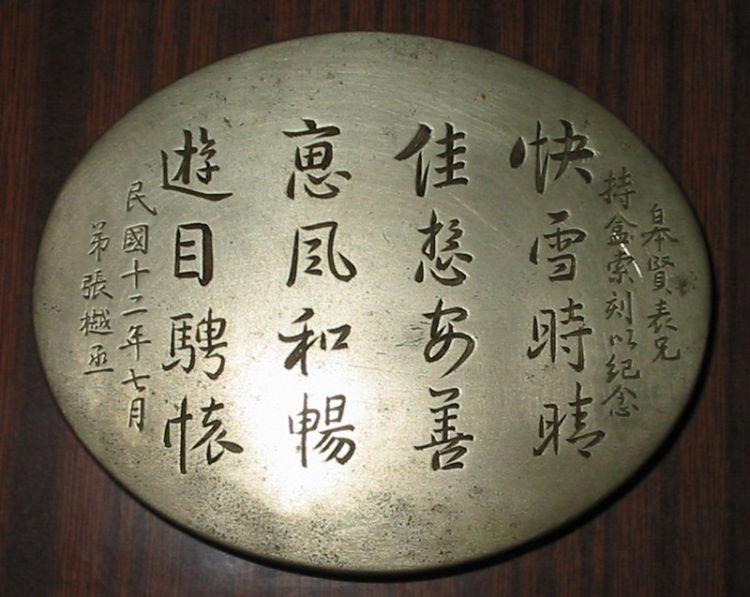 皋賢表兄
持盒索刻以紀念
快雪時晴
佳想安善
惠風和暢
遊目騁懷
民國十二年七月
弟張樾丞